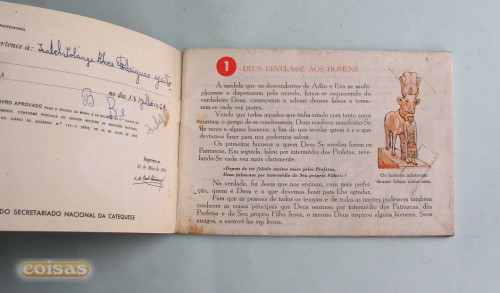 PROFESSORES
ertence a: Isabel Solange
no dia 17
VRO APROVADO
Imprimatur
DO SECRETARIADO NACIONAL DA CATEQUESE
coisas
1
DEUS REVELA-SE AOS HOMENS
À medida que os descendentes de Adão e Eva se multi-
plicavam e dispersavam pelo mundo, foram-se esquecendo do
verdadeiro Deus, começaram a adorar deuses falsos e torna-
ram-se cada vez piores.
Vendo que todos aqueles que tinha criado com tanto amor
corriam o perigo de se condenarem, Deus resolveu manifestar-Se
de novo a alguns homens, a fim de nos revelar quem é e o que
devemos fazer para nos podermos salvar.
Os primeiros homens a quem Deus Se revelou foram os
Patriarcas. Em seguida, falou por intermédio dos Profetas, reve-
lando-Se cada vez mais claramente.
«Depois de ter falado muitas vezes pelos Profetas,
Deus falou-nos por intermédio do Seu próprio Filho»
Na verdade, foi Jesus que nos ensinou, com mais perfei-
ção, quem é Deus e o que devemos fazer para Lhe agradar.
Para que as pessoas de todos os tempos e de todas as nações pudessem também
conhecer as coisas principais que Deus ensinou por intermédio dos Patriarcas, dos
Profetas e do Seu próprio Filho Jesus, o mesmo Deus inspirou alguns homens, Seus
amigos, a escrevê-las em livros.
Os homens adoravam
deuses falsos como este.